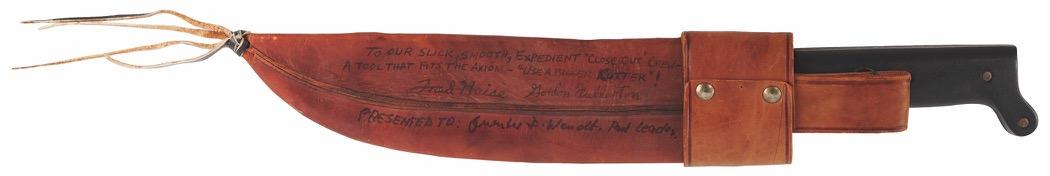 TO OUR SLICK, SMOOTH, EXPEDIENT "CLOSE OUT CREW-
A TOOL THAT FITS THE AXIOM- "USE A BIGGER CUTTER"!
Fred Haise Gordon Fullerton
PRESENTED TO: F. Wendt. Pad Leader.